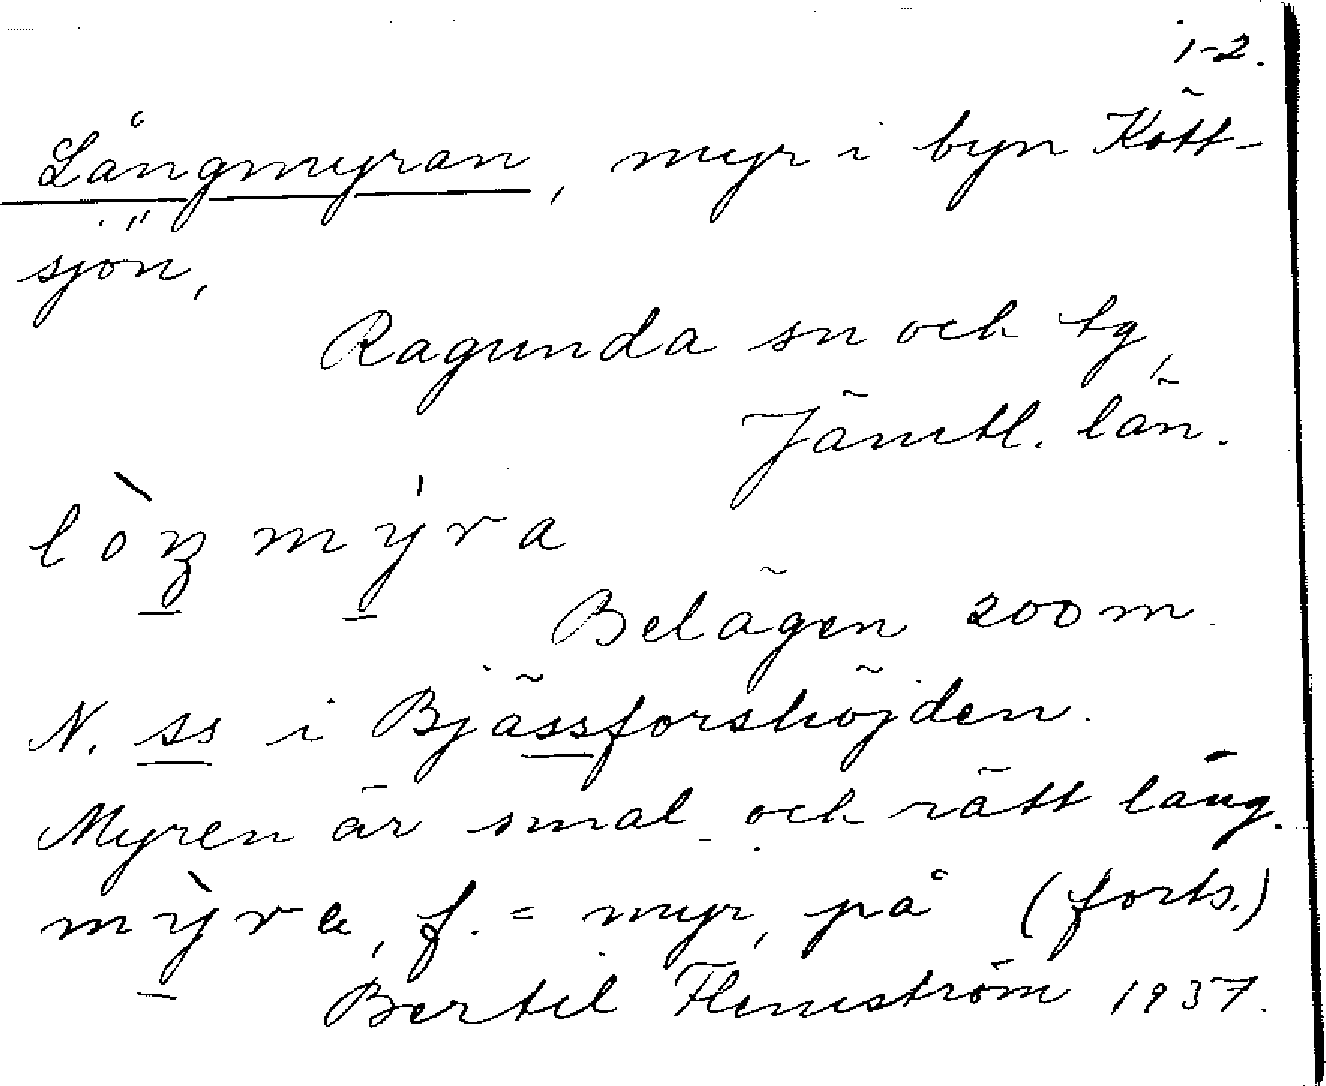 1-2.
Långmyran, myr i byn Kött-
sjön,
Ragunda sn och tg,
Jämtl. län.
lòŋmýra
Belägen 200 m
N. ss i Bjässforshöjden.
Myren är smal och rätt lång.
mỳra, f. = myr, på (forts.)
Bertil Flemström 1937.